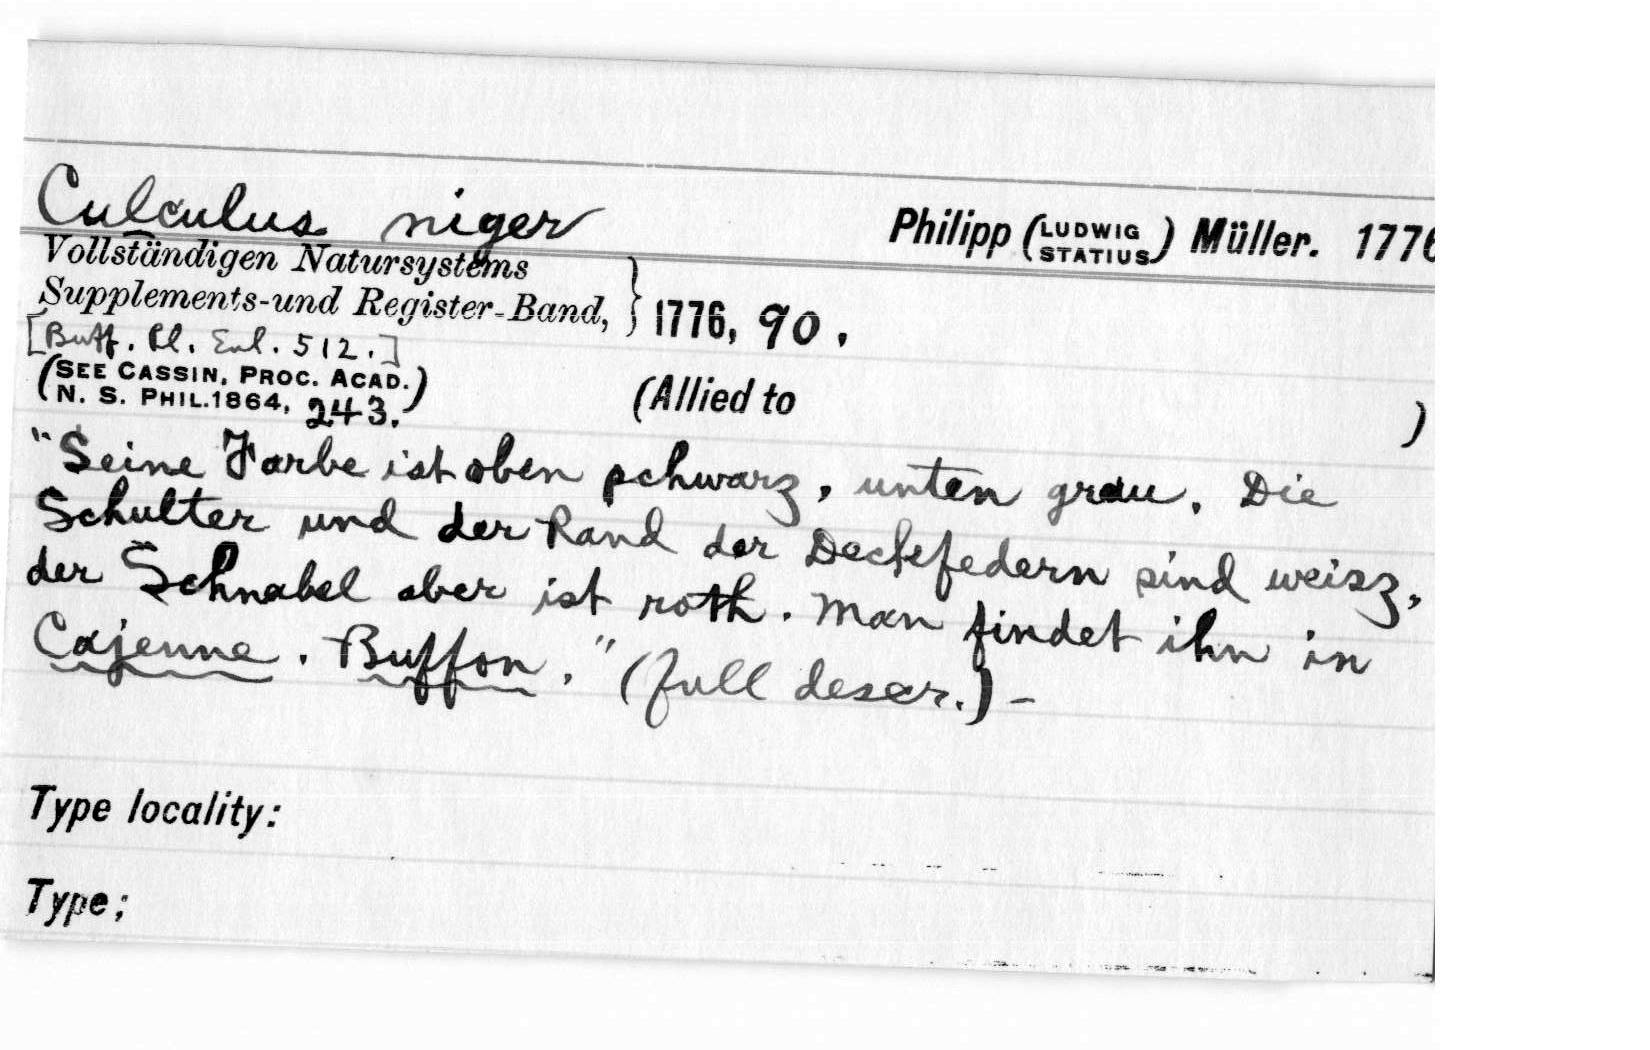 Culculus niger
Philipp (LUDWIG STATIUS) Müller. 1776
Vollständigen Natursystems
Supplements-und Register-Band, } 1776, 90.
[Buff. Pl. Enl. 512.]
(SEE CASSIN, PROC. ACAD.
N. S. PHIL.1864, 243.)
(Allied to )
"Seine Farbe ist oben schwarz, unten grau. Die
Schulter und der Rand der Deckfedern sind weisz,
der Schnabel aber ist roth. Man findet ihn in
Cajenne. Buffon." (full descr.) –
Type locality:
Type;